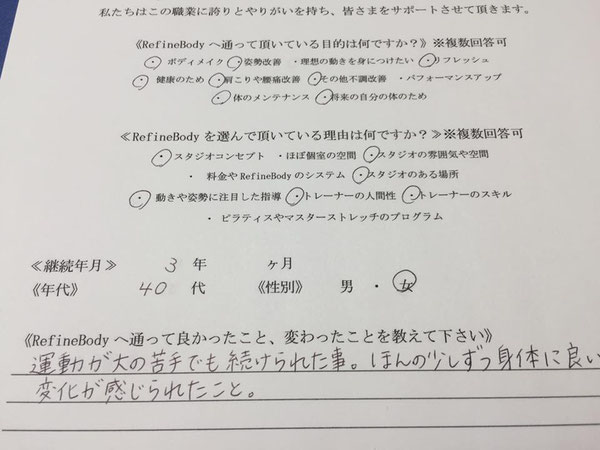 私たちはこの職業に誇りとやりがいを持ち、皆さまをサポートさせて頂きます。
《RefineBody へ通って頂いている目的は何ですか？》※複数回答可
・ボディメイク ・姿勢改善 ・理想の動きを身につけたい ・リフレッシュ
・健康のため ・肩こりや腰痛改善 ・その他不調改善 ・パフォーマンスアップ
・体のメンテナンス ・将来の自分の体のため
≪RefineBody を選んで頂いている理由は何ですか？≫※複数回答可
・スタジオコンセプト ・ほぼ個室の空間 ・スタジオの雰囲気や空間
・料金や RefineBody のシステム ・スタジオのある場所
・動きや姿勢に注目した指導 ・トレーナーの人間性 ・トレーナーのスキル
・ピラティスやマスターストレッチのプログラム
≪継続年月≫ 3 年 ヶ月
《年代》 40 代 《性別》 男 ・ 女
《RefineBody へ通って良かったこと、変わったことを教えて下さい》
運動が大の苦手でも続けられた事。ほんの少しずつ身体に良い
変化が感じられたこと。